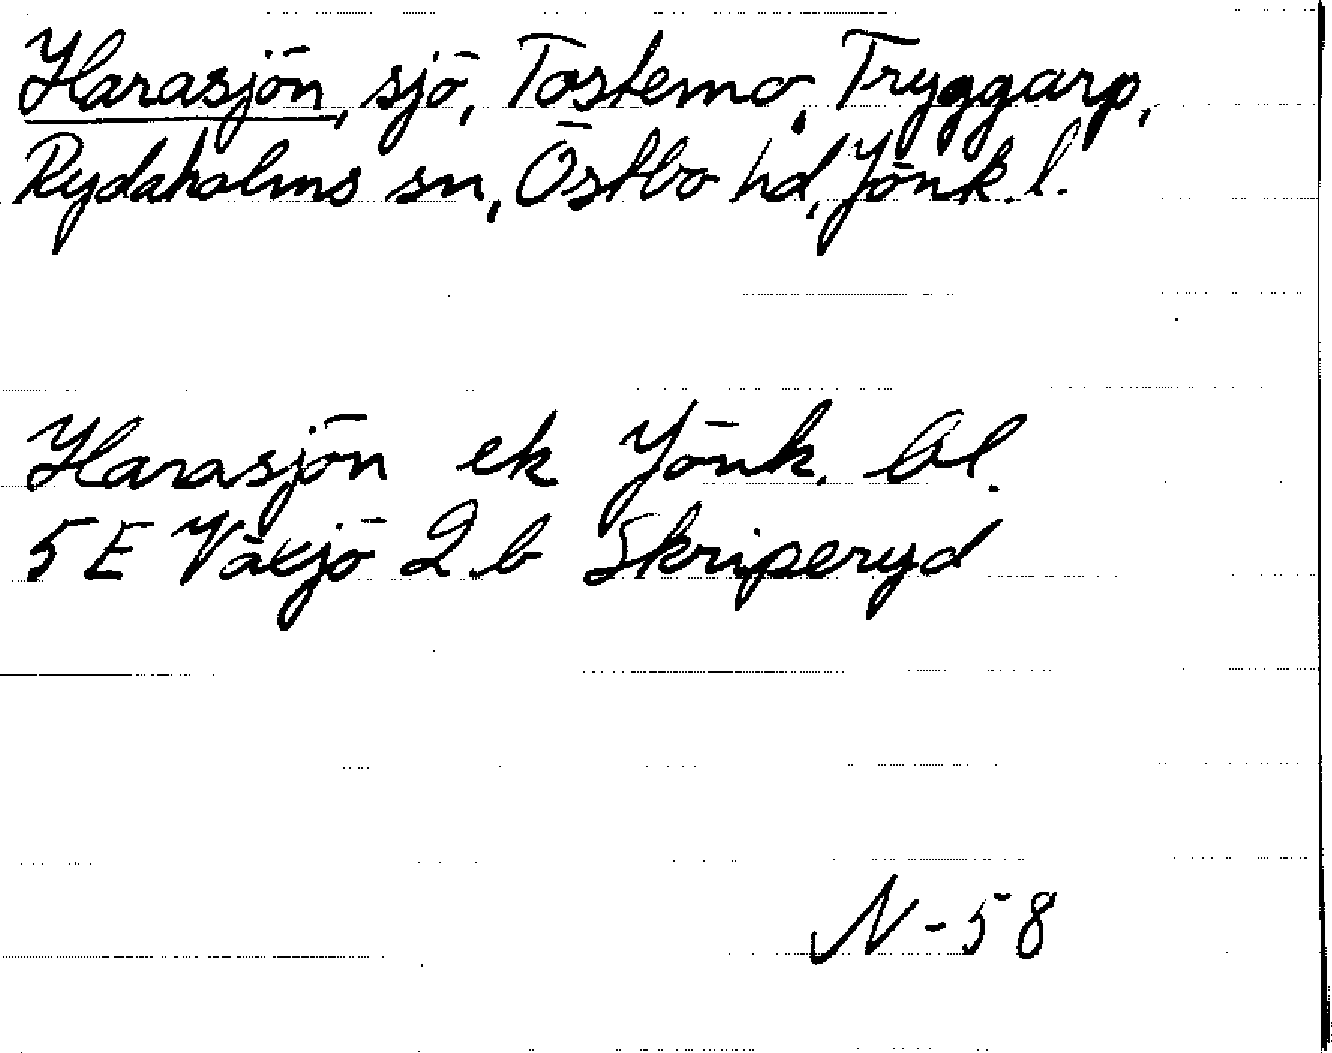 Harasjön, sjö, Tostemo, Tryggarp,
Rydaholms sn, Östbo hd, Jönk. l.
Harasjön ek Jönk. bl.
5E Växjö 2 b Skriperyd
N-58